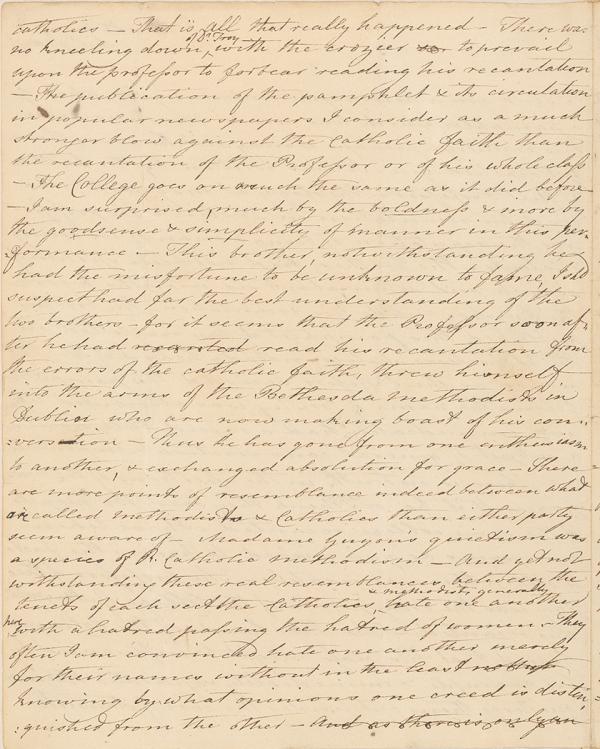 catholics — That is all that really happened — There was
no kneeling down, of Dr. Troy with the crozier to prevail
upon the professor to forbear reading his recantation
— The publication of the pamphlet & its circulation
in popular newspapers I consider as a much
stronger blow against the Catholic faith than
the recantation of the Professor or of his whole class
— The College goes on much the same as it did before —
— I am surprised much by the boldness & more by
the goodsense & simplicity of manner in this per-
:formance — This brother, notwithstanding he
had the misfortune to be unknown to fame, I shd
suspect had far the best understanding of the
two brothers — for it seems that the Professor soon af-
ter he had recanted read his recantation from
the errors of the catholic faith, threw himself
into the arms of the Bethesda methodists in
Dublin who are now making boast of his con-
:version — Thus he has gone from one enthusiasm
to another, & exchanged absolution for grace — There
are more points of resemblance indeed between what
are called methodists & Catholics than either party
seem aware of — Madame Guyon's quietism was
a species of R. Catholic methodism — And yet not
withstanding these real resemblances between the
tenets of each sect the Catholics & methodists generally hate one another
here with a hatred passing the hatred of women — They
often I am convinced hate one another merely
for their names without in the least
knowing by what opinions one creed is distin
:guished from the other — And as there is only an